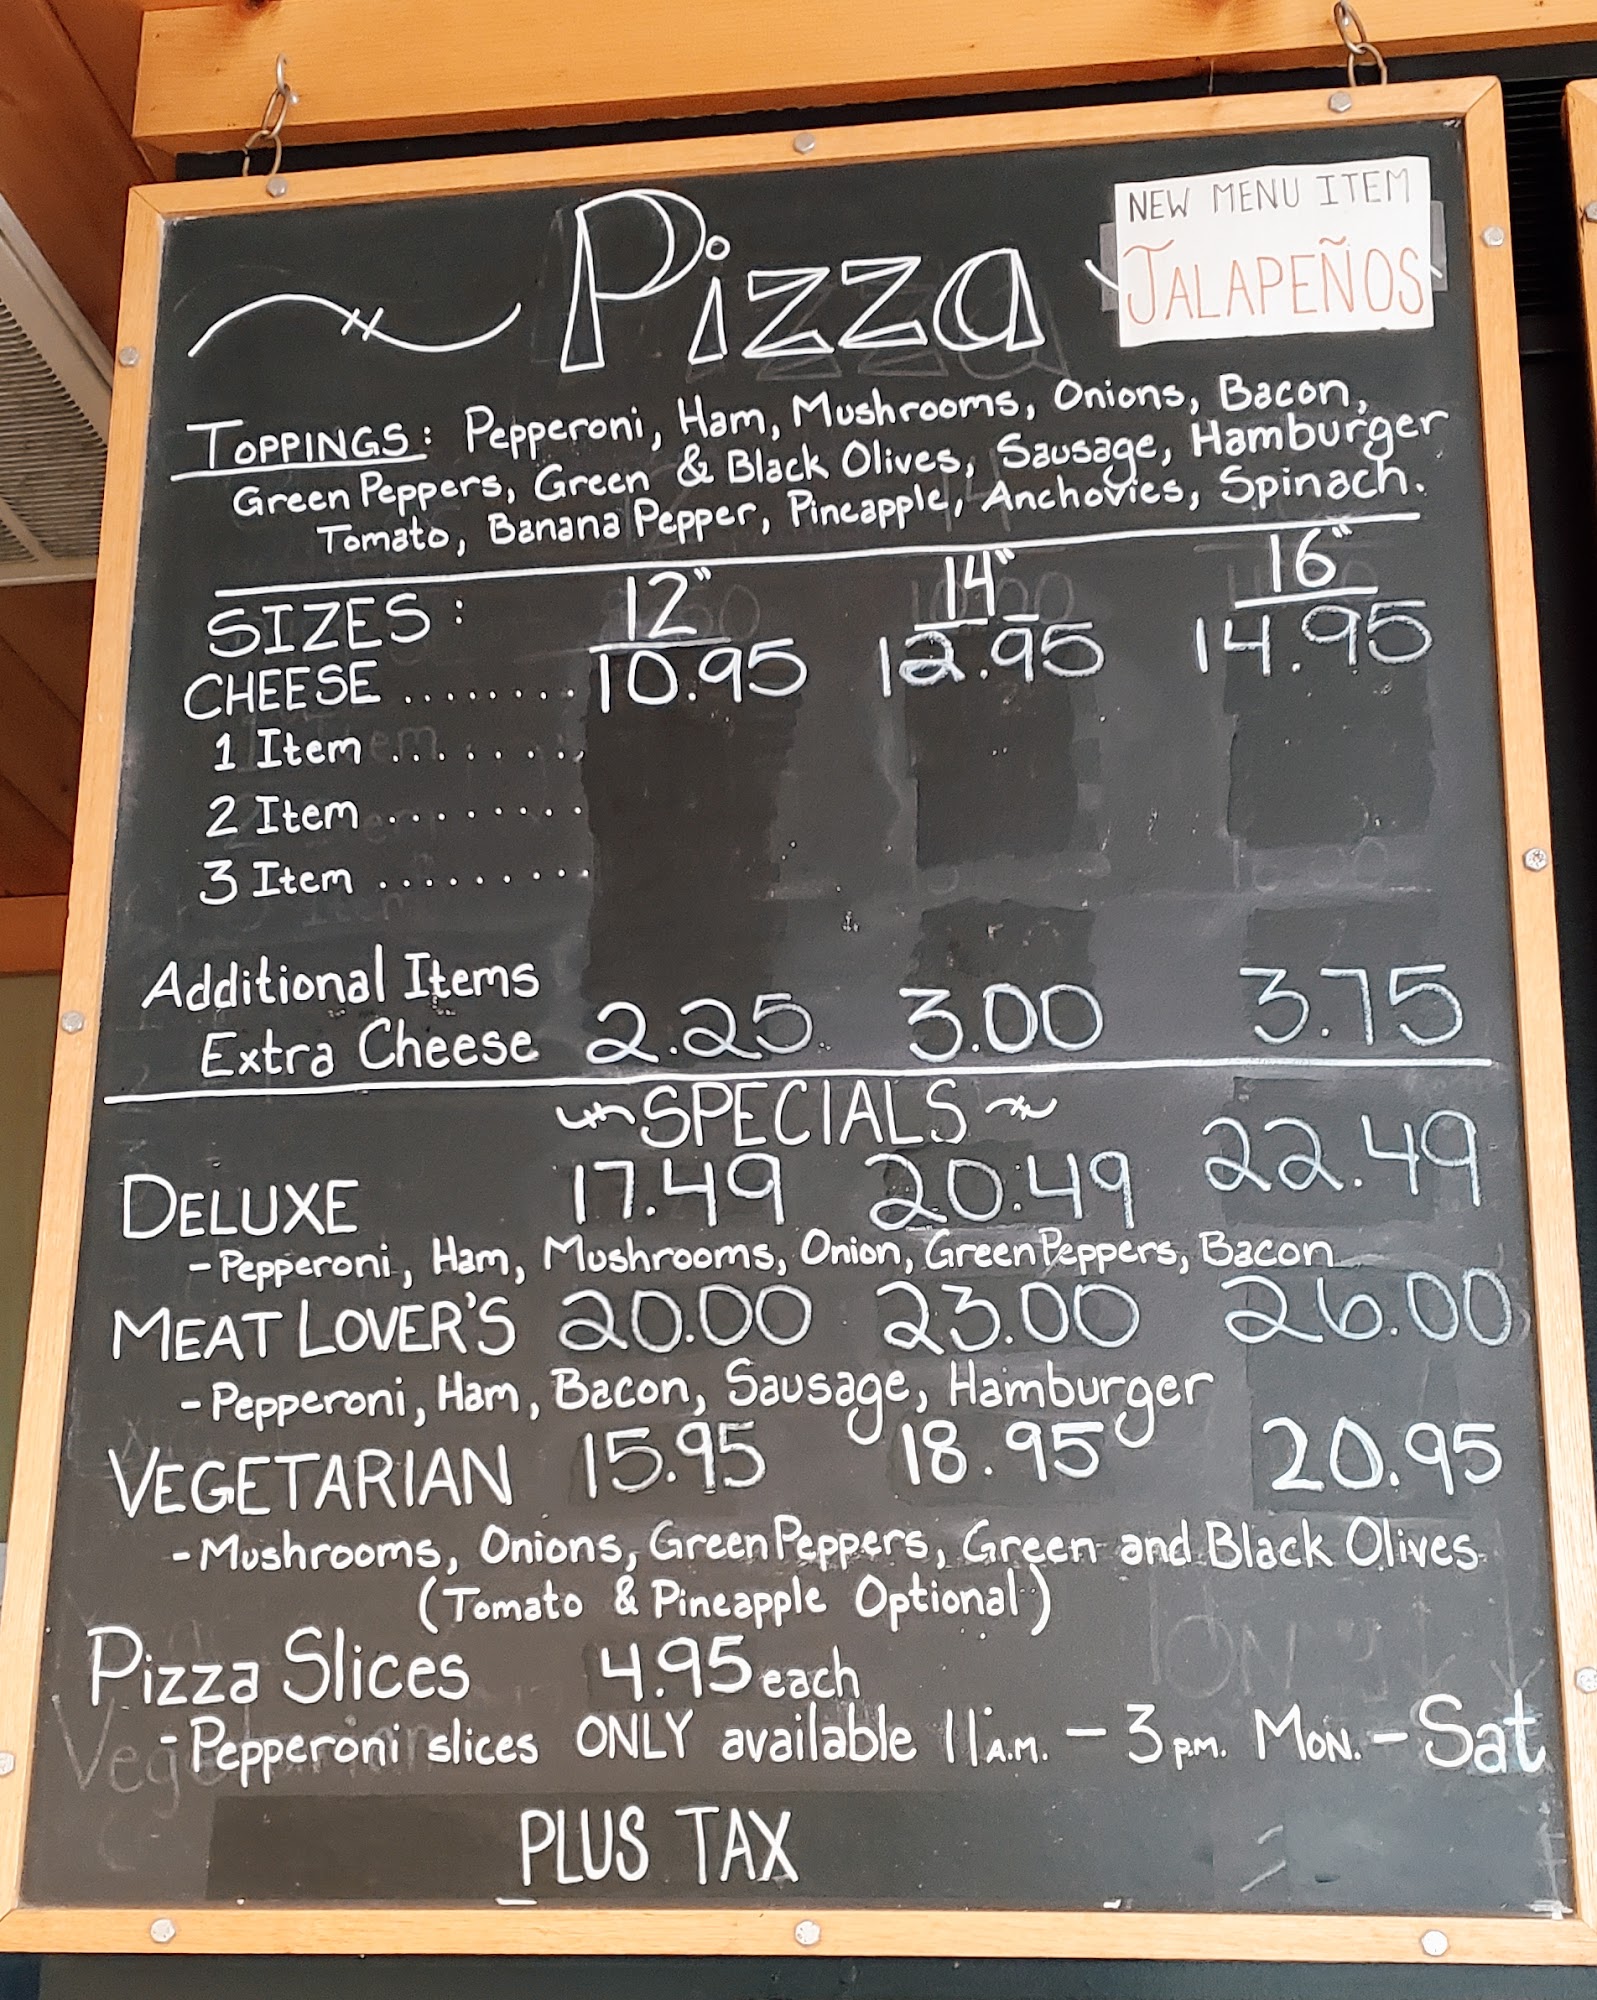 Pizza
NEW MENU ITEM
JALAPEÑOS
TOPPINGS: Pepperoni, Ham, Mushrooms, Onions, Bacon,
Green Peppers, Green & Black Olives, Sausage, Hamburger
Tomato, Banana Pepper, Pineapple, Anchovies, Spinach.
SIZES: 12" 14" 16"
CHEESE ........ 10.95 12.95 14.95
1 Item ........
2 Item ........
3 Item .........
Additional Items
Extra Cheese 2.25 3.00 3.75
SPECIALS
DELUXE 17.49 20.49 22.49
- Pepperoni, Ham, Mushrooms, Onion, Green Peppers, Bacon
MEAT LOVER'S 20.00 23.00 26.00
- Pepperoni, Ham, Bacon, Sausage, Hamburger
VEGETARIAN 15.95 18.95 20.95
- Mushrooms, Onions, Green Peppers, Green and Black Olives
(Tomato & Pineapple Optional)
Pizza Slices 4.95 each
- Pepperoni slices ONLY available 11 A.M. - 3 P.M. MON. - Sat
PLUS TAX